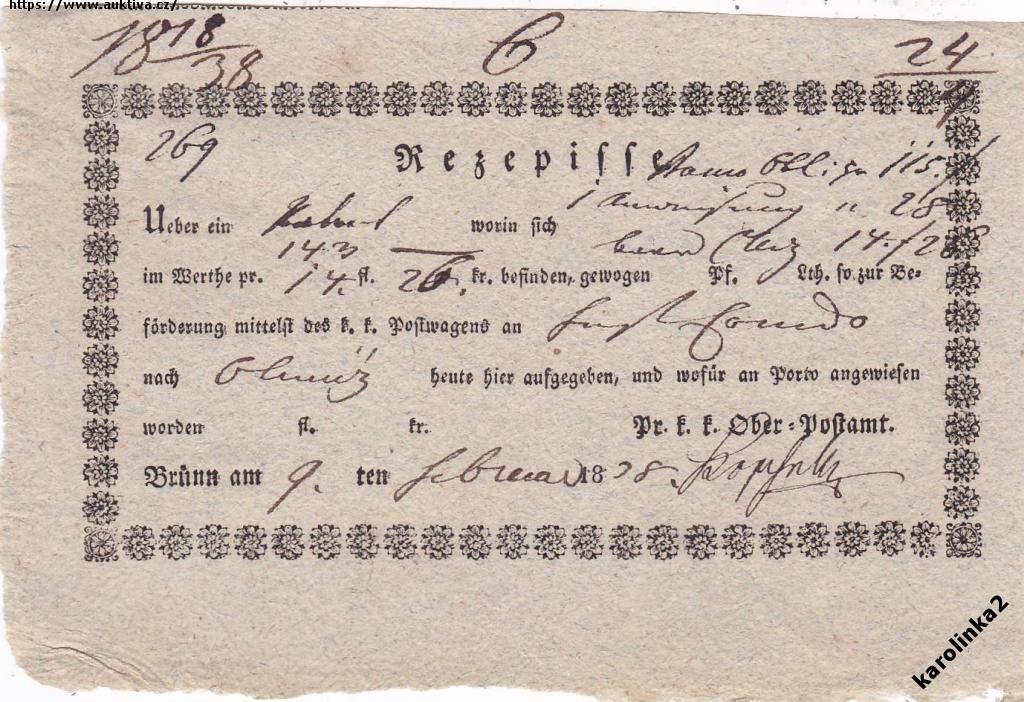 https://www.auktiva.cz/
18 18/38 6 24/4
269
Rezepisse
Obl: 115.
1 Anweisung 28
Ueber ein worin sich
143 14.f 28
im Werthe pr. 14. fl. 26. kr. befinden, gewogen Pf. Lth. so zur Be-
förderung mittelst des k. k. Postwagens an
nach Olmütz heute hier aufgegeben, und wofür an Porto angewiesen
worden fl. kr. Pr. k. k. Ober-Postamt.
Brünn am 9. ten Februar 1838.
karolinka2